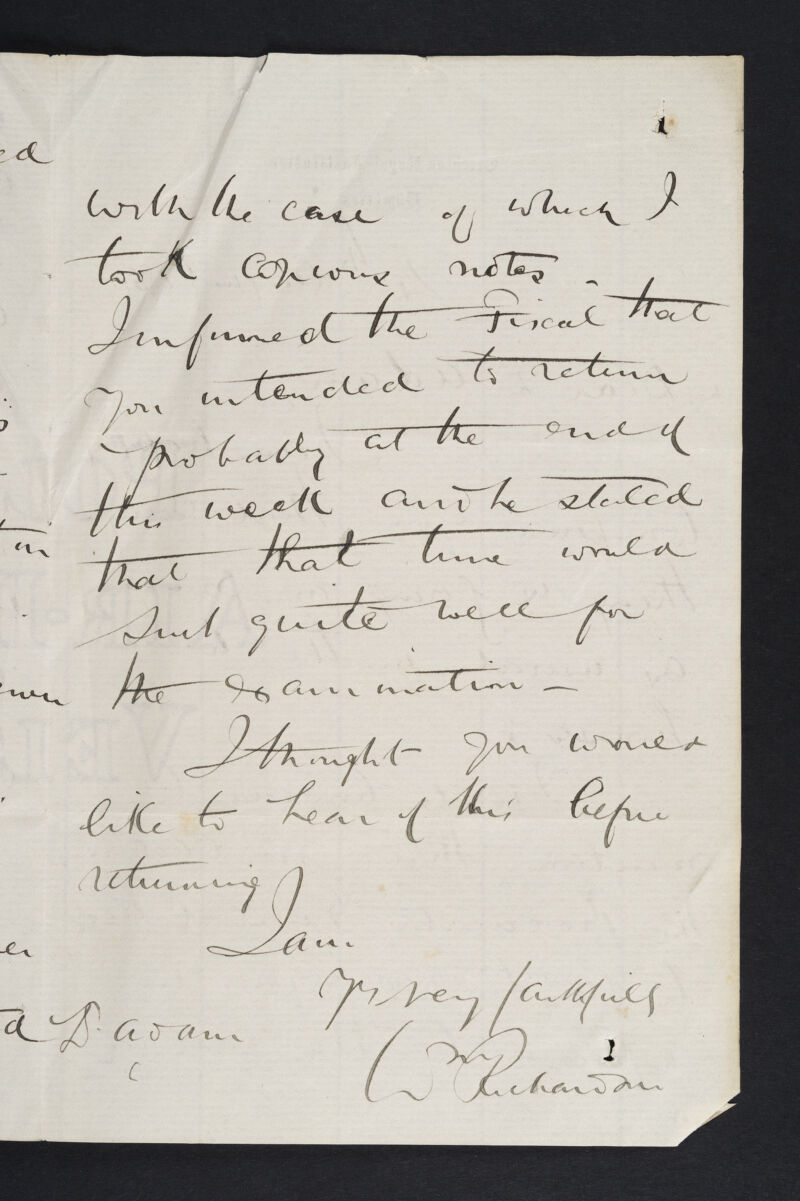 with the case of which I
took copious notes.
I informed the Fiscal that
you intended to return
probably at the end of
this week and he stated
that that time would
suit quite well for
the examination —
I thought you would
like to hear of this before
returning
I am
Yrs very faithfully
Wm Richardson
Dr Adam